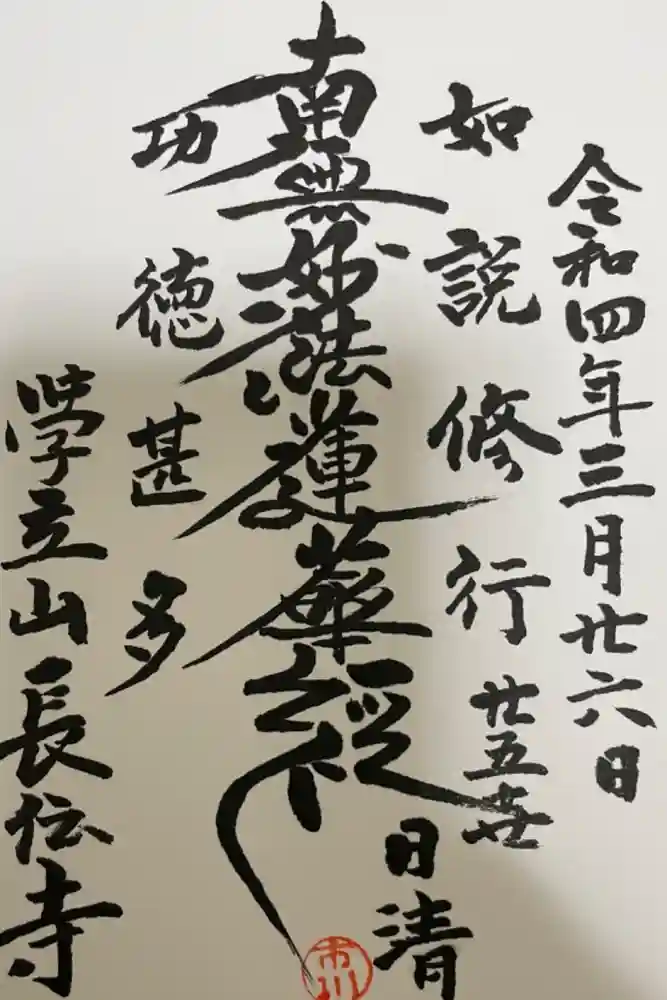 令和四年三月廿六日
如説修行
廿五世
日清
南無妙法蓮華経
市川
功徳甚多
学立山長伝寺